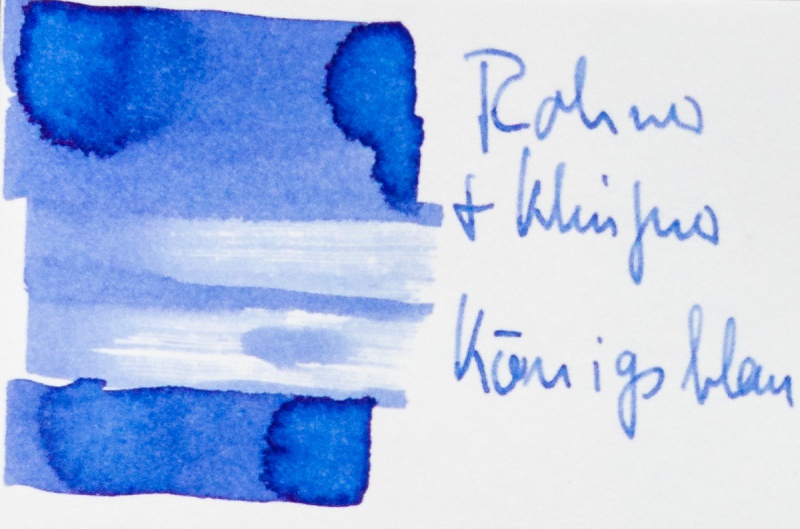 Rohrer
+ Klingner
Königsblau